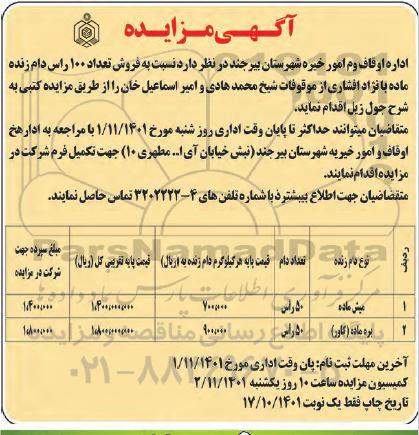 آگهی مزایده
اداره اوقاف وم امور خیره شهرستان بیرجند در نظر دارد نسبت به فروش تعداد ۱۰۰ راس دام زنده
ماده با نژاد افشاری از موقوفات شیخ محمد هادی و امیر اسماعیل خان را از طریق مزایده کتبی به
شرح جول زیل اقدام نماید.
متقاضیان میتوانند حداکثر تا پایان وقت اداری روز شنبه مورخ ۱/۱۱/۱۴۰۱ با مراجعه به ادارهخ
اوقاف و امور خیریه شهرستان بیرجند (نبش خیابان آی ا... مطهری ۱۰) جهت تکمیل فرم شرکت در
مزایده اقدام نمایند.
متقضاضیان جهت اطلاع بییشتر ذبا شماره تلفن های ۴-۳۲۰۲۲۲۲ تماس حاصل نمایند.
ردیف نوع دام زنده تعداد دام قیمت پایه هر کیلوگرم دام زنده به (ریال) قیمت پایه تقریبی کل (ریال) مبلغ سپرده جهت شرکت در مزایده
۱ میش ماده ۵۰ راس ۷۰۰/۰۰۰
۲ بره ماده (کاور) ۵۰ راس ۹۰۰/۰۰۰
آخرین مهلت ثبت نام: پان وقت اداری مورخ ۱/۱۱/۱۴۰۱
کمیسیون مزایده ساعت ۱۰ روز یکشنبه ۲/۱۱/۱۴۰۱
تاریخ چاپ فقط یک نوبت ۱۷/۱۰/۱۴۰۱
ParsNamadData